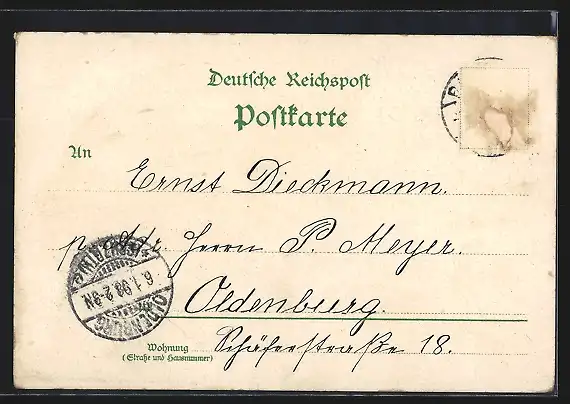 Deutsche Reichspost
Postkarte
An
Ernst Dieckmann.
p. Adr. Herrn P. Meyer.
Oldenburg.
Wohnung
(Straße und Hausnummer)
Schäferstraße 18.
OLDENBURG
6.1.98.2-3N